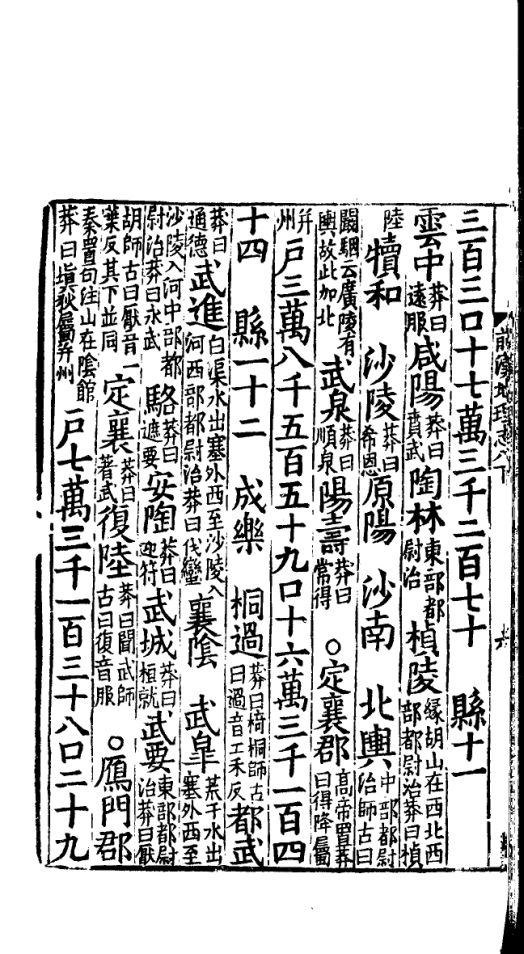 前漢地理志八下
三百三口十七萬三千二百七十　縣十一
雲中莽曰遠服咸陽莽曰賁武陶林東部都尉治楨陵緣胡山在西北西部都尉治莽曰楨
陸犢和　沙陵莽曰希恩原陽　沙南　北輿中部都尉治師古曰
闞駰云廣陵有輿故此加北武泉莽曰順泉陽壽莽曰常得○定襄郡高帝置莽曰得降屬
并州戶三萬八千五百五十九口十六萬三千一百四
十四　縣一十二　成樂　桐過莽曰椅桐師古曰過音工禾反都武
莽曰通德武進白渠水出塞外西至沙陵入河西部都尉治莽曰伐蠻襄陰　武皋荒干水出塞外西至
沙陵入河中部都尉治莽曰永武駱莽曰遮要安陶莽曰迎符武城莽曰桓就武要東部都尉治莽曰厭
胡師古曰厭音一葉反其下並同定襄莽曰著武復陸莽曰聞武師古曰復音服○鴈門郡
秦置句注山在陰館莽曰填狄屬并州戶七萬三千一百三十八口二十九